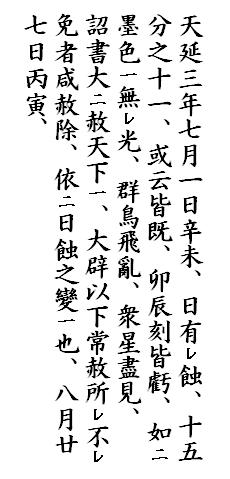 天延三年七月一日辛未、日有㆑蝕、十五
分之十一、或云皆既、卯辰刻皆虧、如㆓
墨色㆒無㆑光、群鳥飛亂、衆星盡見、
詔書大㆓赦天下㆒、大辟以下常赦所㆑不㆑
免者咸赦除、依㆓日蝕之變㆒也、八月廿
七日丙寅、